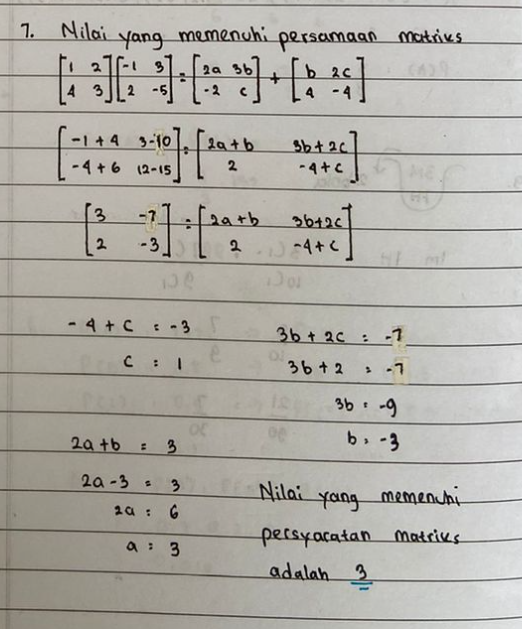 7. Nilai yang memenuhi persamaan matriks
[1 2 4 3] [-1 3 2 -5] = [2a 3b -2 c] + [b 2c 4 -4]
[-1+4 3-10 -4+6 12-15] = [2a+b 3b+2c 2 -4+c]
[3 -7 2 -3] = [2a+b 3b+2c 2 -4+c]
-4+c = -3
c = 1
3b+2c = -7
3b+2 = -7
3b = -9
b = -3
2a+b = 3
2a-3 = 3
2a = 6
a = 3
Nilai yang memenuhi
persyaratan matriks
adalah 3